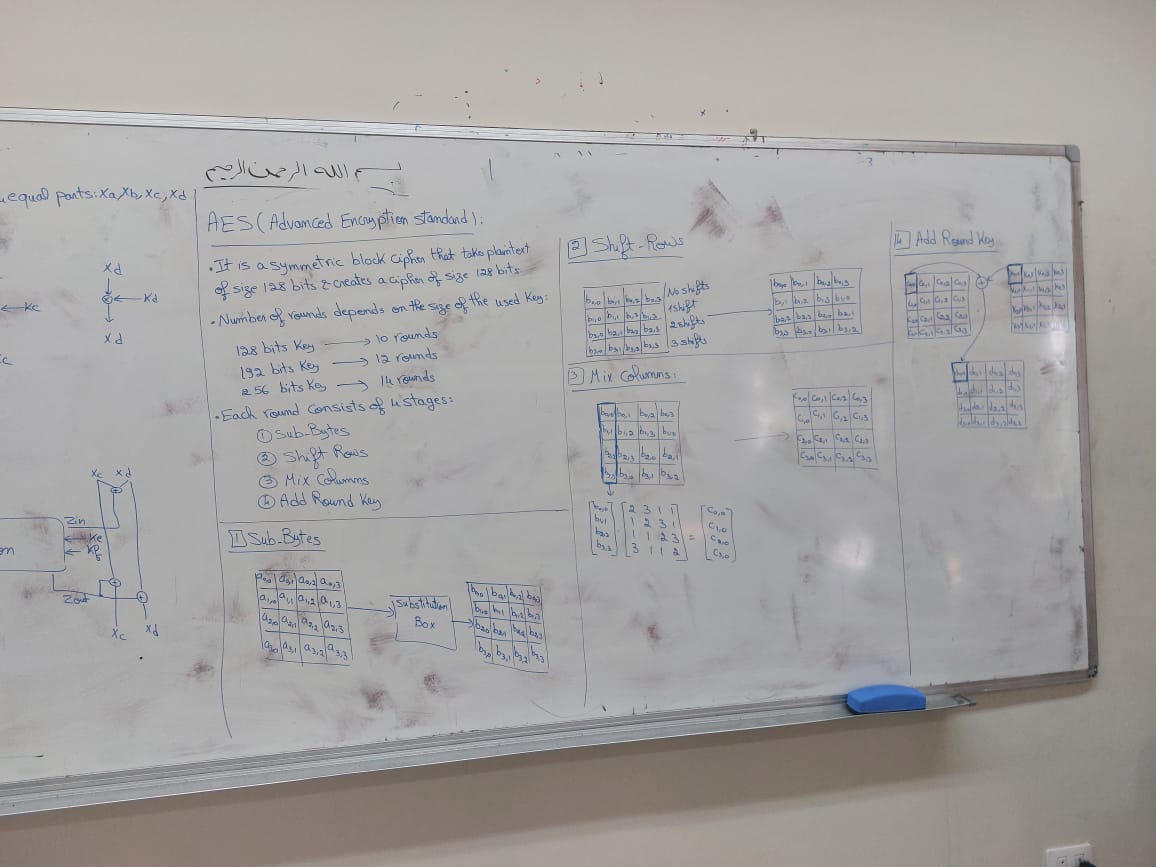 equal parts: Xa, Xb, Xc, Xd
Xd
Kc
Kd
Xd
Xc Xd
Zin
Ke
Kf
on
Zout
Xc Xd
بسم الله الرحمن الرحيم
AES (Advanced Encryption Standard):
• It is a symmetric block cipher that take plaintext
of size 128 bits & creates a cipher of size 128 bits
• Number of rounds depends on the size of the used Key:
128 bits Key → 10 rounds
192 bits Key → 12 rounds
256 bits Key → 14 rounds
• Each round consists of 4 stages:
① Sub-Bytes
② Shift Rows
③ Mix Columns
④ Add Round Key
1 Sub-Bytes
a0,0 a0,1 a0,2 a0,3
a1,0 a1,1 a1,2 a1,3
a2,0 a2,1 a2,2 a2,3
a3,0 a3,1 a3,2 a3,3
Substitution
Box
b0,0 b0,1 b0,2 b0,3
b1,0 b1,1 b1,2 b1,3
b2,0 b2,1 b2,2 b2,3
b3,0 b3,1 b3,2 b3,3
2 Shift-Rows
b0,0 b0,1 b0,2 b0,3 No shifts
b1,0 b1,1 b1,2 b1,3 1 shift
b2,0 b2,1 b2,2 b2,3 2 shifts
b3,0 b3,1 b3,2 b3,3 3 shifts
b0,0 b0,1 b0,2 b0,3
b1,1 b1,2 b1,3 b1,0
b2,2 b2,3 b2,0 b2,1
b3,3 b3,0 b3,1 b3,2
3 Mix Columns:
b0,0 b0,1 b0,2 b0,3
b1,1 b1,2 b1,3 b1,0
b2,2 b2,3 b2,0 b2,1
b3,3 b3,0 b3,1 b3,2
C0,0 C0,1 C0,2 C0,3
C1,0 C1,1 C1,2 C1,3
C2,0 C2,1 C2,2 C2,3
C3,0 C3,1 C3,2 C3,3
b0,0 2 3 1 1 C0,0
b1,1 1 2 3 1 C1,0
b2,2 1 1 2 3 = C2,0
b3,3 3 1 1 2 C3,0
4 Add Round Key
C0,0 C0,1 C0,2 C0,3
C1,0 C1,1 C1,2 C1,3
C2,0 C2,1 C2,2 C2,3
C3,0 C3,1 C3,2 C3,3
K0,0 K0,1 K0,2 K0,3
K1,0 K1,1 K1,2 K1,3
K2,0 K2,1 K2,2 K2,3
K3,0 K3,1 K3,2 K3,3
d0,0 d0,1 d0,2 d0,3
d1,0 d1,1 d1,2 d1,3
d2,0 d2,1 d2,2 d2,3
d3,0 d3,1 d3,2 d3,3